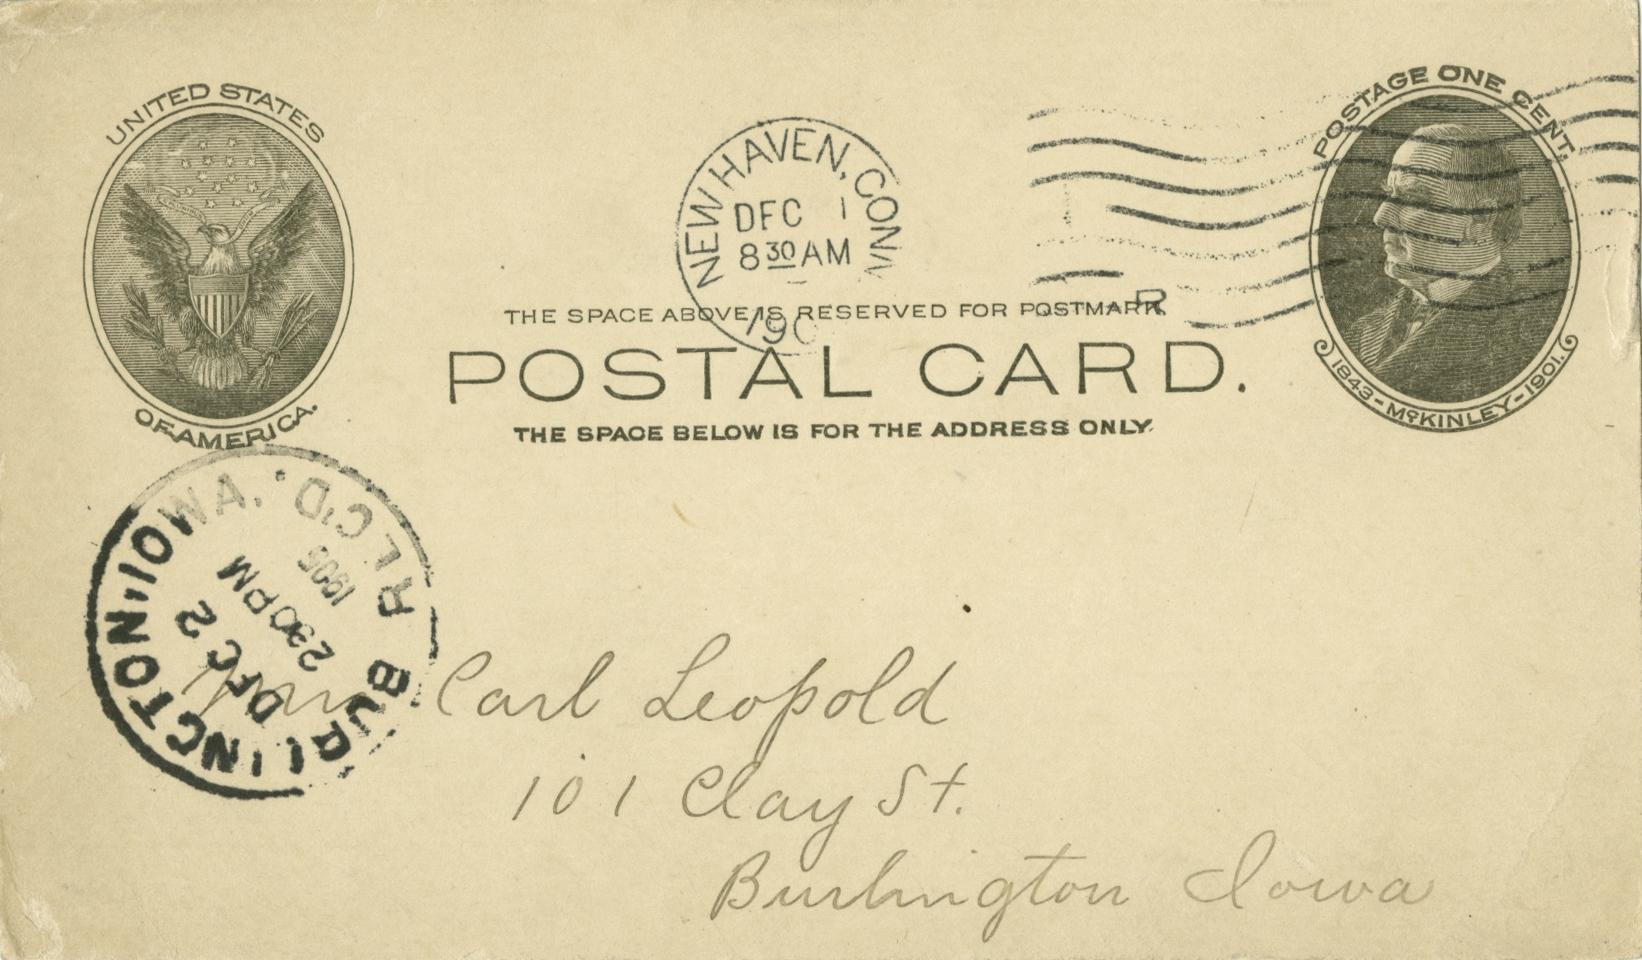 UNITED STATES
OF AMERICA.
NEW HAVEN, CONN
DEC 1
8 30 AM
190
POSTAGE ONE CENT.
1843-McKINLEY-1901.
THE SPACE ABOVE IS RESERVED FOR POSTMARK.
R
POSTAL CARD.
THE SPACE BELOW IS FOR THE ADDRESS ONLY.
BURLINGTON, IOWA. REC'D.
DEC 2
230 PM
1905
Carl Leopold
101 Clay St.
Burlington Iowa